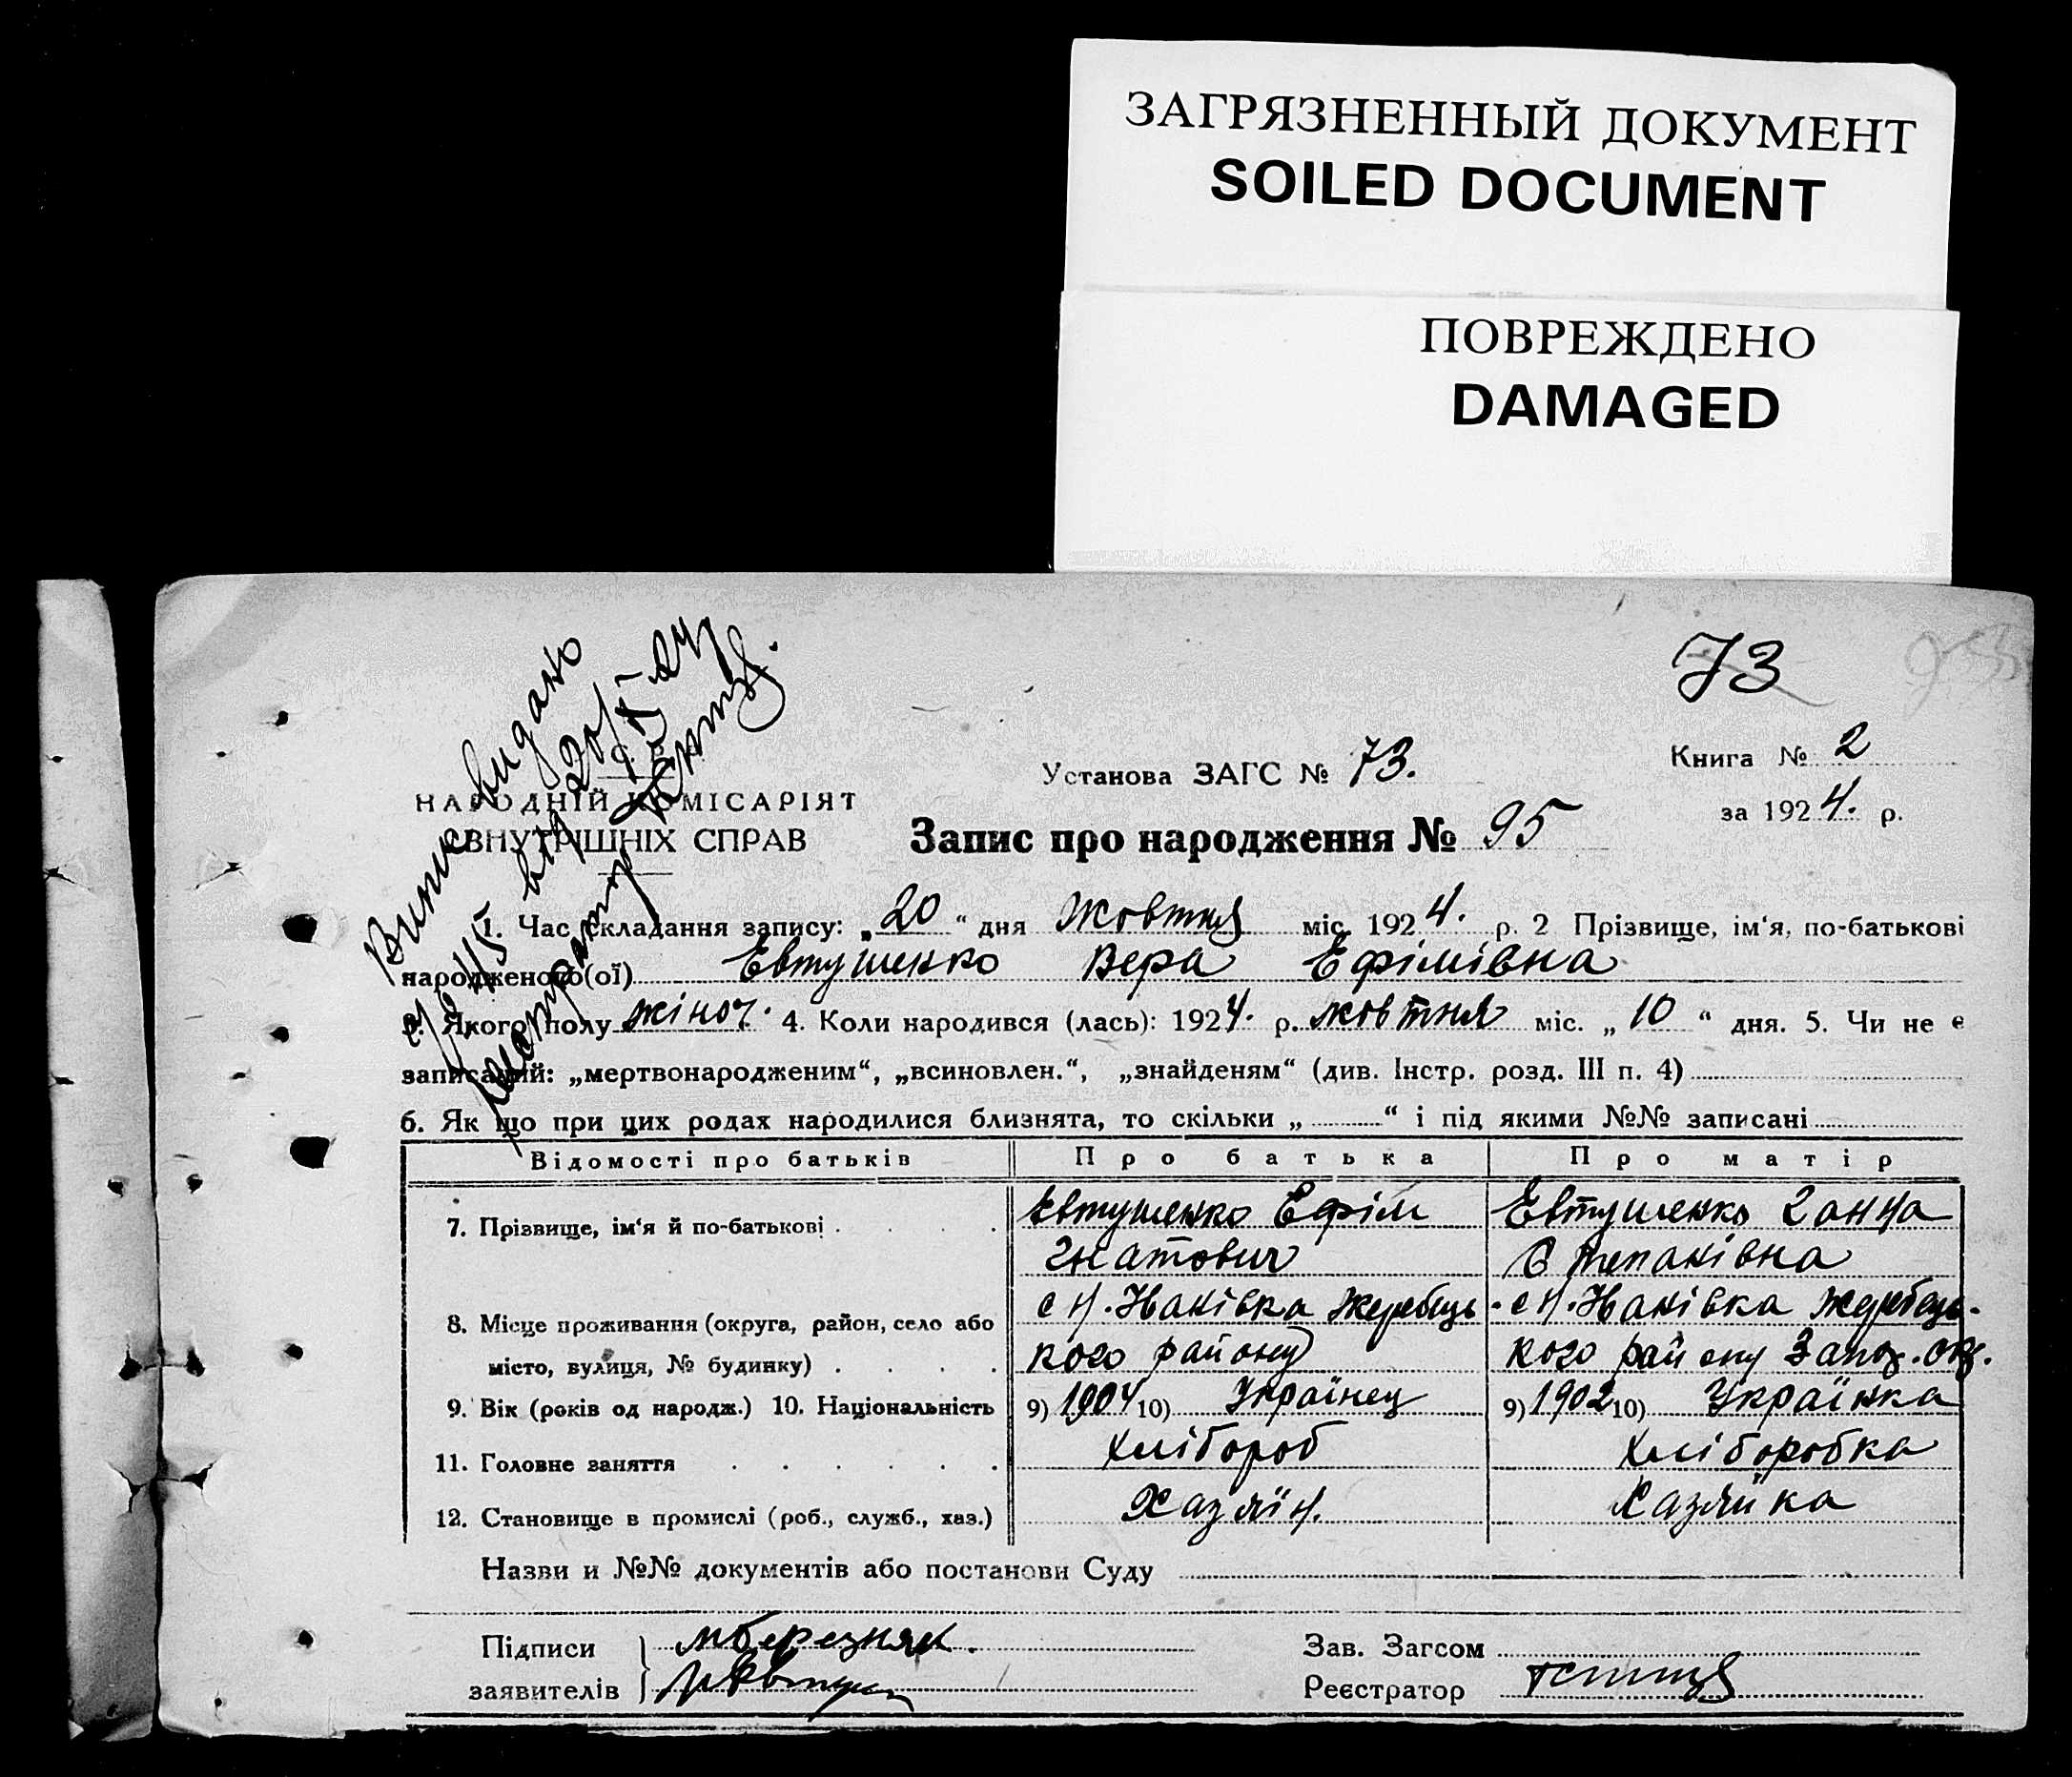 ЗАГРЯЗНЕННЫЙ ДОКУМЕНТ
SOILED DOCUMENT
ПОВРЕЖДЕНО
DAMAGED
73
Випис видано
Книга № 2
Установа ЗАГС № 73.
НАРОДНІЙ КОМІСАРІЯТ
за 1924. р.
ВНУТРІШНІХ СПРАВ
Запис про народження № 95
1. Час складання запису: „20“ дня Жовтня міс. 1924. р. 2 Прізвище, ім‘я, по-батькові
народженого(ої) Евтушенко Вера Ефімівна
3. Якого полу жіноч. 4. Коли народився (лась): 1924. р. жовтня міс. „10“ дня. 5. Чи не є
записаний: „мертвонародженим“, „всиновлен.“, „знайденям“ (див. Інстр. розд. III п. 4)
6. Як що при цих родах народилися близнята, то скільки „ “ і під якими №№ записані
Відомості про батьків Про батька Про матір
7. Прізвище, ім‘я й по-батькові Евтушенко Ефім Евтушенко Ганна
Гнатович Степанівна
8. Місце проживання (округа, район, село або с Н. Іванівка Жеребець- с Н. Іванівка Жеребець-
місто, вулиця, № будинку) кого району кого району Запор. окр.
9. Вік (років од народж.) 10. Національність 9) 1904 10) Українец 9) 1902 10) Українка
11. Головне заняття Хлібороб Хліборобка
12. Становище в промислі (роб., служб., хаз.) Хазяїн. Хазяйка
Назви и №№ документів або постанови Суду
Підписи Мберезняк. Зав. Загсом
заявителів Реєстратор